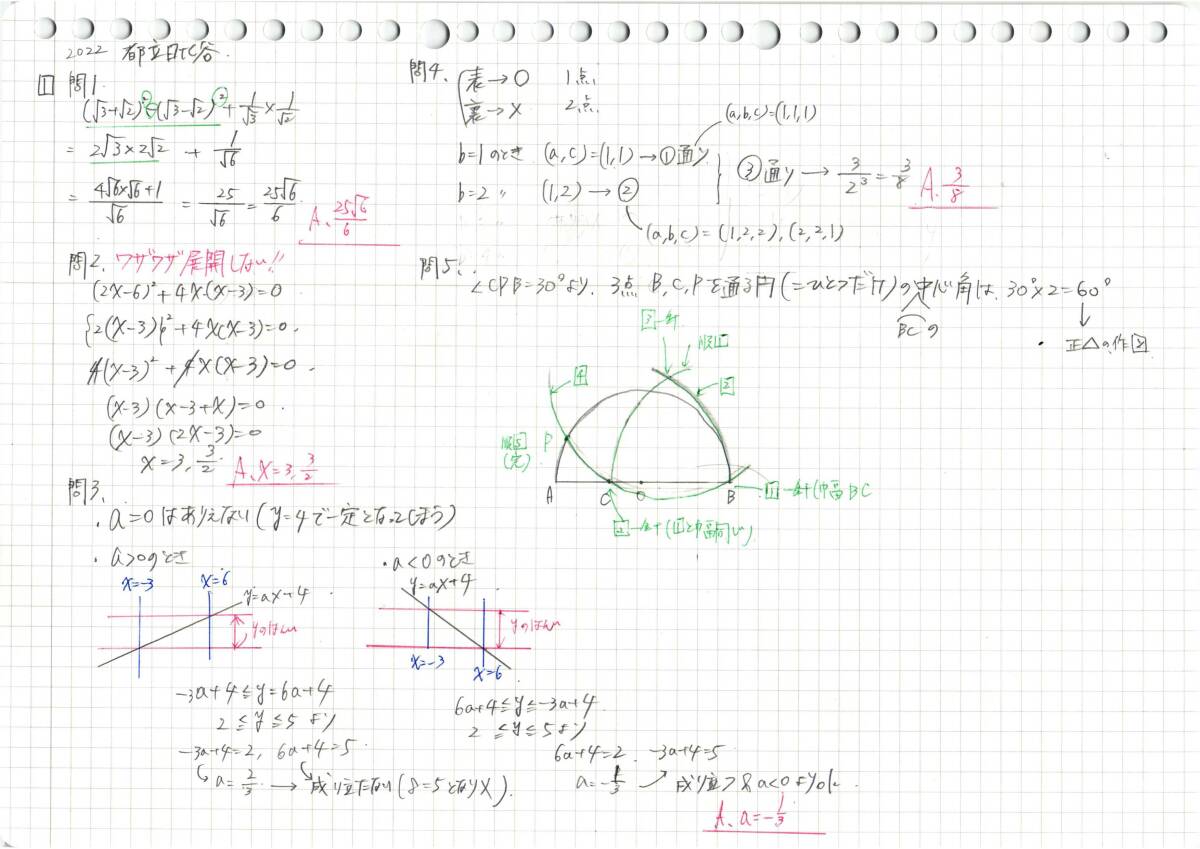 2022 都立日比谷.
1 問1.
(√3+√2)²-(√3-√2)²+1/√3×1/√2
= 2√3×2√2 + 1/√6
= 4√6×√6+1/√6 = 25/√6 = 25√6/6
A. 25√6/6
問2. ワザワザ展開しない!!
(2x-6)²+4x(x-3)=0
{2(x-3)}²+4x(x-3)=0.
4(x-3)²+4x(x-3)=0.
(x-3)(x-3+x)=0.
(x-3)(2x-3)=0
x=3, 3/2.
A. x=3, 3/2
問3.
・a=0はありえない(y=4で一定となってしまう)
・a>0のとき
x=-3 x=6
y=ax+4
yのはんい
-3a+4≦y=6a+4
2≦y≦5より
-3a+4=2, 6a+4=5.
a=2/3 → 成り立たない(8=5となり×).
・a<0のとき
y=ax+4
yのはんい
x=-3 x=6
6a+4≦y≦-3a+4
2≦y≦5より
6a+4=2. -3a+4=5
a=-1/3 成り立つ & a<0よりok.
A. a=-1/3
問4.
表→○ 1点
裏→× 2点
(a,b,c)=(1,1,1)
b=1のとき (a,c)=(1,1)→①通り
b=2 〃 (1,2)→②
③通り→3/2³=3/8
A. 3/8
(a,b,c)=(1,2,2),(2,2,1)
問5.
∠CPB=30°より. 3点B,C,Pを通る円(=ひとつだけ)の中心角は. 30°×2=60°
BCの
・正△の作図
3-針
順1
4
2
順5
(完)
P
A C O B
1-針(巾幅BC
2-針(1と巾幅同じ)